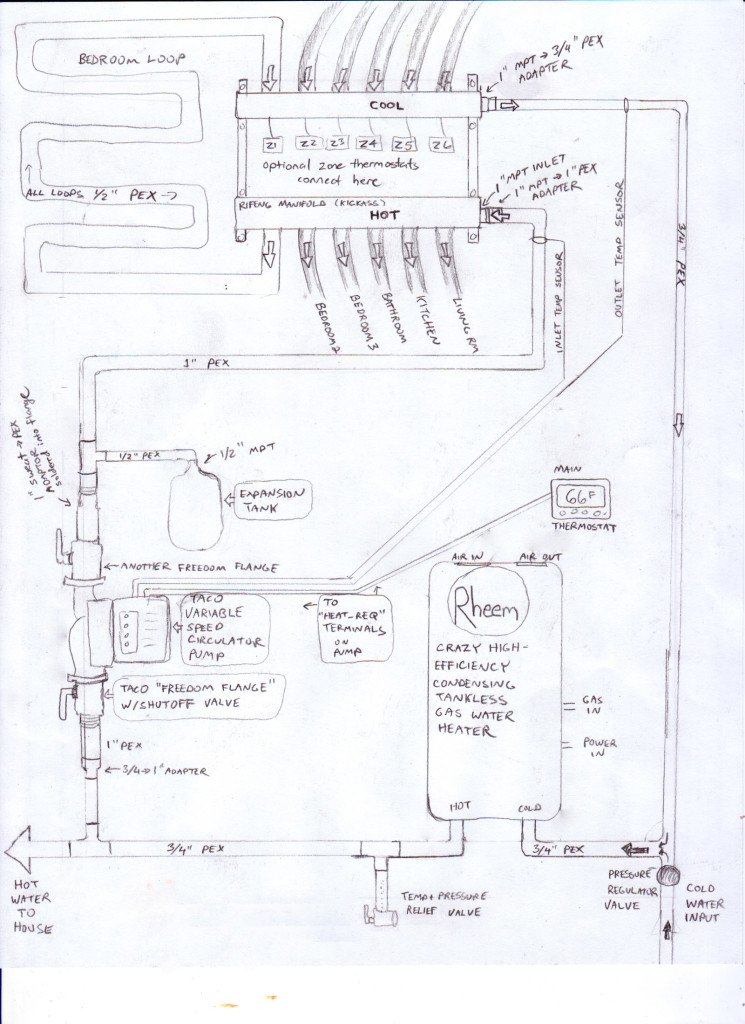 BEDROOM LOOP
1" MPT → 3/4" PEX
ADAPTER
COOL
Z1 Z2 Z3 Z4 Z5 Z6
optional zone thermostats
connect here
1" MPT INLET
1" MPT → 1" PEX
ADAPTER
ALL LOOPS 1/2" PEX →
RIFENG MANIFOLD (KICKASS)
HOT
OUTLET TEMP SENSOR
3/4" PEX
INLET TEMP SENSOR
BEDROOM 2
BEDROOM 3
BATHROOM
KITCHEN
LIVING RM
1" PEX
1" SWEAT → PEX
ADAPTOR
soldered into flange
1/2" PEX
1/2" MPT
EXPANSION
TANK
MAIN
66F
THERMOSTAT
← ANOTHER FREEDOM FLANGE
AIR IN
AIR OUT
TACO
VARIABLE
SPEED
CIRCULATOR
PUMP
← TO
"HEAT-REQ"
TERMINALS
ON
PUMP
Rheem
CRAZY HIGH-
EFFICIENCY
CONDENSING
TANKLESS
GAS WATER
HEATER
TACO "FREEDOM FLANGE"
W/SHUTOFF VALVE
GAS
IN
POWER
IN
1" PEX
← 3/4 → 1" ADAPTER
HOT
COLD
3/4" PEX
3/4" PEX
HOT
WATER
TO
HOUSE
TEMP + PRESSURE
RELIEF VALVE
PRESSURE
REGULATOR
VALVE
COLD
WATER
INPUT